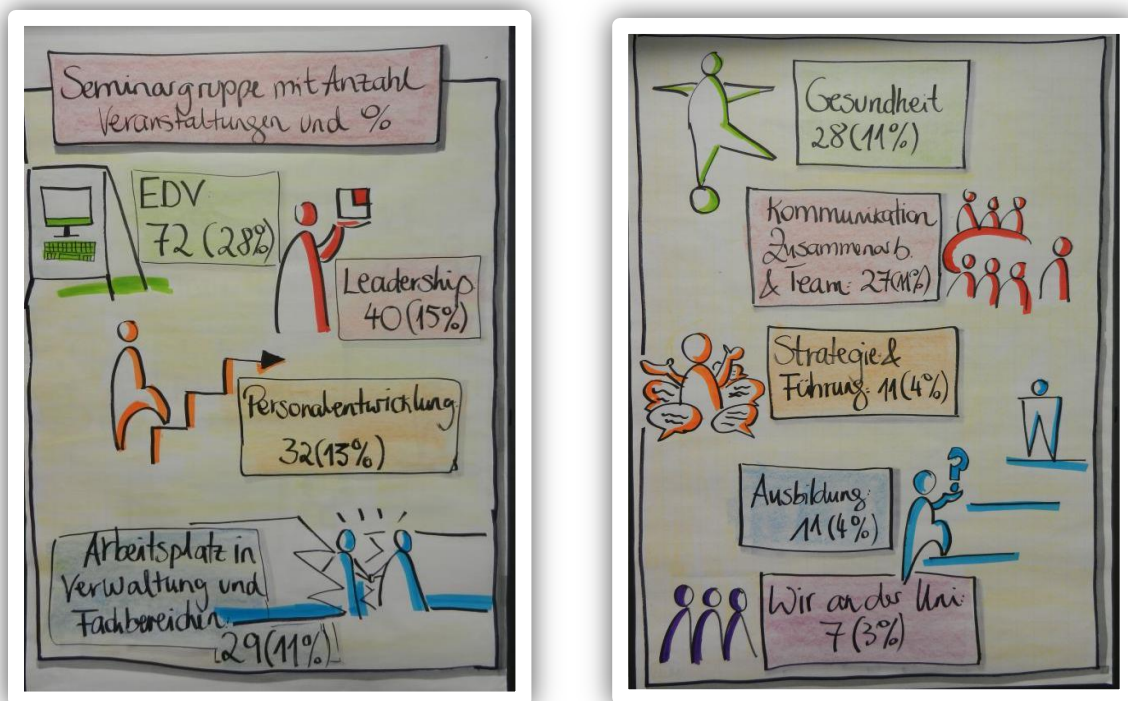 Seminargruppe mit Anzahl
Veranstaltungen und %
EDV
72 (28%)
Leadership
40 (15%)
Personalentwicklung
32 (13%)
Arbeitsplatz in
Verwaltung und
Fachbereichen:
29 (11%)
Gesundheit
28 (11%)
Kommunikation
Zusammenarb.
& Team: 27 (11%)
Strategie &
Führung: 11 (4%)
?
Ausbildung:
11 (4%)
Wir an der Uni:
7 (3%)